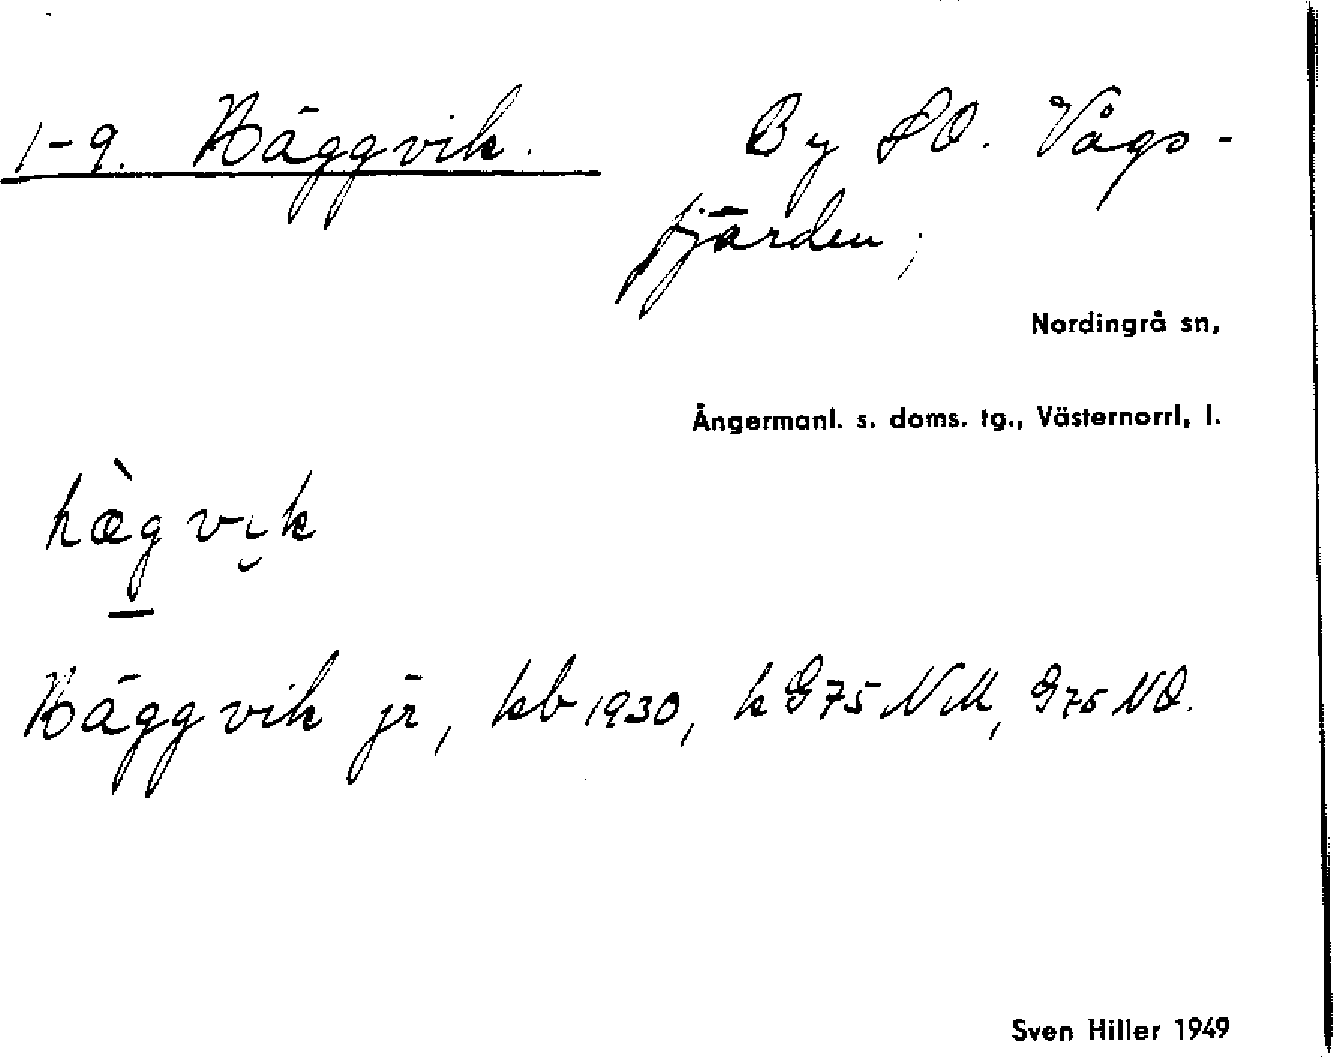 1-9. Häggvik. By SO. Vågs-
fjärden,
Nordingrå sn,
Ångermanl. s. doms. tg., Västernorrl. l.
hæ̀g vik
Häggvik jr, kb 1930, k G75 NM, G76 NO.
Sven Hiller 1949